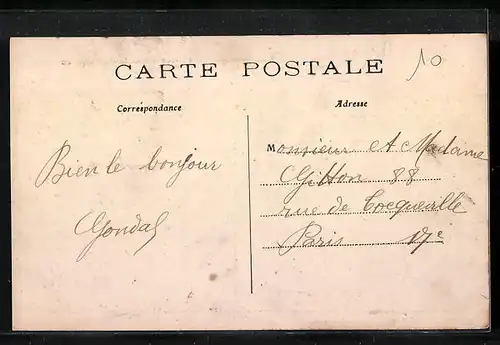 10
CARTE POSTALE
Correspondance
Adresse
Bien le bonjour
Gondal
Monsieur et Madame
Gitton 88
rue de Tocqueville
Paris 17e